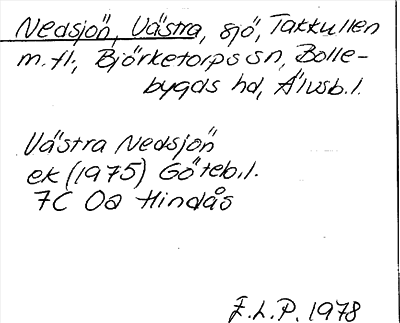 Nedsjön, Västra, sjö, Takkullen
m.fl., Björketorps sn, Bolle-
bygds hd, Älvsb.l.
Västra Nedsjön
ek (1975) Göteb.l.
7C 0a Hindås
E.L.P. 1978